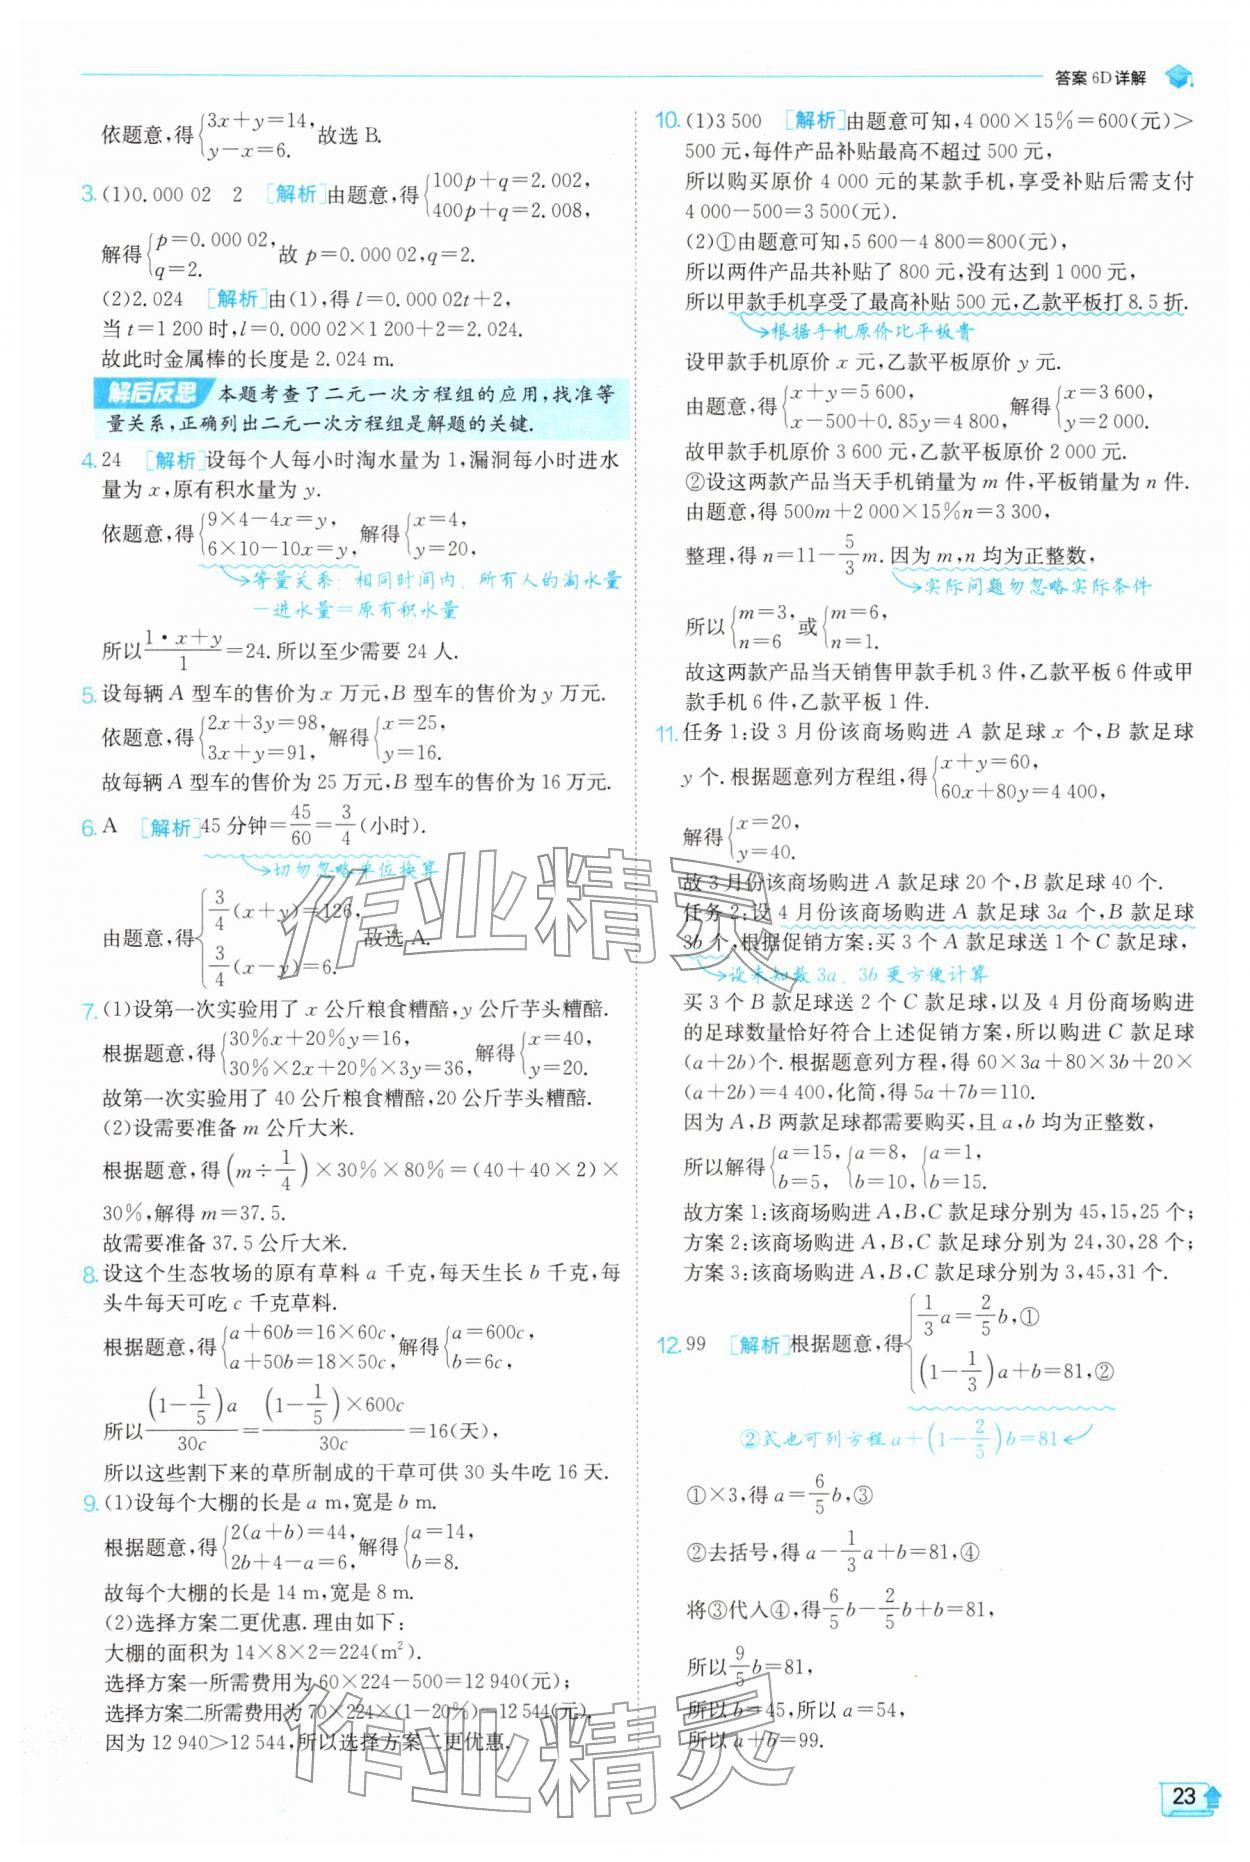 答案 6D 详解
依题意,得{3x+y=14, y-x=6. 故选 B.
3. (1)0.000 02 2 [解析]由题意,得{100p+q=2.002, 400p+q=2.008,
解得{p=0.000 02, q=2. 故 p=0.000 02,q=2.
(2)2.024 [解析]由(1),得 l=0.000 02t+2,
当 t=1 200 时,l=0.000 02×1 200+2=2.024.
故此时金属棒的长度是 2.024 m.
解后反思 本题考查了二元一次方程组的应用,找准等
量关系,正确列出二元一次方程组是解题的关键.
4. 24 [解析]设每个人每小时淘水量为 1,漏洞每小时进水
量为 x,原有积水量为 y.
依题意,得{9×4-4x=y, 6×10-10x=y, 解得{x=4, y=20,
等量关系:相同时间内,所有人的淘水量
-进水量=原有积水量
所以(1·x+y)/1=24.所以至少需要 24 人.
5. 设每辆 A 型车的售价为 x 万元,B 型车的售价为 y 万元.
依题意,得{2x+3y=98, 3x+y=91, 解得{x=25, y=16.
故每辆 A 型车的售价为 25 万元,B 型车的售价为 16 万元.
6. A [解析]45 分钟=45/60=3/4(小时).
切勿忽略单位换算
由题意,得{3/4(x+y)=126, 3/4(x-y)=6. 故选 A.
7. (1)设第一次实验用了 x 公斤粮食糟醅,y 公斤芋头糟醅.
根据题意,得{30%x+20%y=16, 30%×2x+20%×3y=36, 解得{x=40, y=20.
故第一次实验用了 40 公斤粮食糟醅,20 公斤芋头糟醅.
(2)设需要准备 m 公斤大米.
根据题意,得(m÷1/4)×30%×80%=(40+40×2)×
30%,解得 m=37.5.
故需要准备 37.5 公斤大米.
8. 设这个生态牧场的原有草料 a 千克,每天生长 b 千克,每
头牛每天可吃 c 千克草料.
根据题意,得{a+60b=16×60c, a+50b=18×50c, 解得{a=600c, b=6c,
所以(1-1/5)a/30c=(1-1/5)×600c/30c=16(天),
所以这些割下来的草所制成的干草可供 30 头牛吃 16 天.
9. (1)设每个大棚的长是 a m,宽是 b m.
根据题意,得{2(a+b)=44, 2b+4-a=6, 解得{a=14, b=8.
故每个大棚的长是 14 m,宽是 8 m.
(2)选择方案二更优惠.理由如下:
大棚的面积为 14×8×2=224(m²).
选择方案一所需费用为 60×224-500=12 940(元);
选择方案二所需费用为 70×224×(1-20%)=12 544(元).
因为 12 940>12 544,所以选择方案二更优惠.
10. (1)3 500 [解析]由题意可知,4 000×15%=600(元)>
500 元,每件产品补贴最高不超过 500 元,
所以购买原价 4 000 元的某款手机,享受补贴后需支付
4 000-500=3 500(元).
(2)①由题意可知,5 600-4 800=800(元),
所以两件产品共补贴了 800 元,没有达到 1 000 元,
所以甲款手机享受了最高补贴 500 元,乙款平板打 8.5 折.
根据手机原价比平板贵
设甲款手机原价 x 元,乙款平板原价 y 元.
由题意,得{x+y=5 600, x-500+0.85y=4 800, 解得{x=3 600, y=2 000.
故甲款手机原价 3 600 元,乙款平板原价 2 000 元.
②设这两款产品当天手机销量为 m 件,平板销量为 n 件.
由题意,得 500m+2 000×15%n=3 300,
整理,得 n=11-5/3m.因为 m,n 均为正整数,
实际问题勿忽略实际条件
所以{m=3, n=6 或{m=6, n=1.
故这两款产品当天销售甲款手机 3 件,乙款平板 6 件或甲
款手机 6 件,乙款平板 1 件.
11. 任务 1:设 3 月份该商场购进 A 款足球 x 个,B 款足球
y 个.根据题意列方程组,得{x+y=60, 60x+80y=4 400,
解得{x=20, y=40.
故 3 月份该商场购进 A 款足球 20 个,B 款足球 40 个.
任务 2:设 4 月份该商场购进 A 款足球 3a 个,B 款足球
3b 个,根据促销方案:买 3 个 A 款足球送 1 个 C 款足球,
设未知数 3a,3b 更方便计算
买 3 个 B 款足球送 2 个 C 款足球,以及 4 月份商场购进
的足球数量恰好符合上述促销方案,所以购进 C 款足球
(a+2b)个.根据题意列方程,得 60×3a+80×3b+20×
(a+2b)=4 400,化简,得 5a+7b=110.
因为 A,B 两款足球都需要购买,且 a,b 均为正整数,
所以解得{a=15, b=5, {a=8, b=10, {a=1, b=15.
故方案 1:该商场购进 A,B,C 款足球分别为 45,15,25 个;
方案 2:该商场购进 A,B,C 款足球分别为 24,30,28 个;
方案 3:该商场购进 A,B,C 款足球分别为 3,45,31 个.
12. 99 [解析]根据题意,得{1/3a=2/5b,① (1-1/3)a+b=81,②
②式也可列方程 a+(1-2/5)b=81
①×3,得 a=6/5b,③
②去括号,得 a-1/3a+b=81,④
将③代入④,得6/5b-2/5b+b=81,
所以9/5b=81,
所以 b=45,所以 a=54,
所以 a+b=99.
作业精灵
作业精灵
23